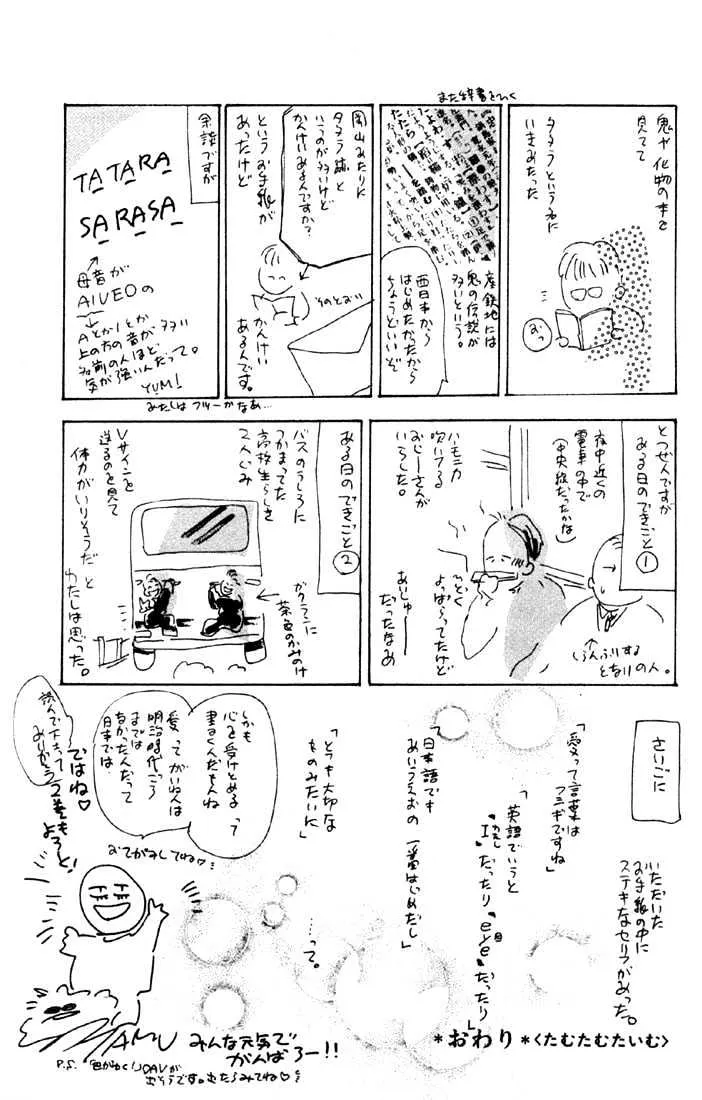 鬼や化物の本を
見てて
タタラという名に
いきあたった
おっ
また辞書をひく
産鉄地には
鬼の伝説が
多いという。
西日本から
はじめたかったから
ちょうどいいぞ
岡山あたりに
タタラ跡と
いうのが多いけど
かんけいあるんですか?
というお手紙が
あったけど
そのとおり
かんけい
あるんです。
余談ですが
TATARA
SARASA
母音が
AIUEOの
AとかIとか
上の方の音が多い
名前の人ほど
気が強いんだって。
YUMI
わたしはフツーかなあ…
とつぜんですが
ある日のできごと①
夜中近くの
電車の中で
(中央線だったかな)
ハモニカ
吹いてる
おじーさんが
いらした。
よっぱらってたけど
あいしゅー
だったなあ
しらんふりする
となりの人。
ある日のできごと②
バスのうしろに
つかまってた
高校生らしき
2人じみ
ガクランに
茶色のかみのけ
Vサインを
送るのを見て
体力がいりそうだ と
わたしは思った。
さいごに
いただいた
お手紙の中に
ステキなセリフがあった。
「愛って言葉は
フシギですね」
「英語でいうと
"I"だったり"eye"だったり」
私
目
「日本語でも
あいうえおの 一番はじめだし」
「とても大切な
ものみたいに」
……って。
しかも
心を受けとめる って
書くんだもんね
愛 ってがいねんは
明治時代ごろ
までは
なかったんだって
日本では。
おてがみしてね♡
ではね♡
2巻もよろしく!
読んで下さって
ありがとう
みんな元気で
がんばろー!!
*おわり*<たむたむたいむ>